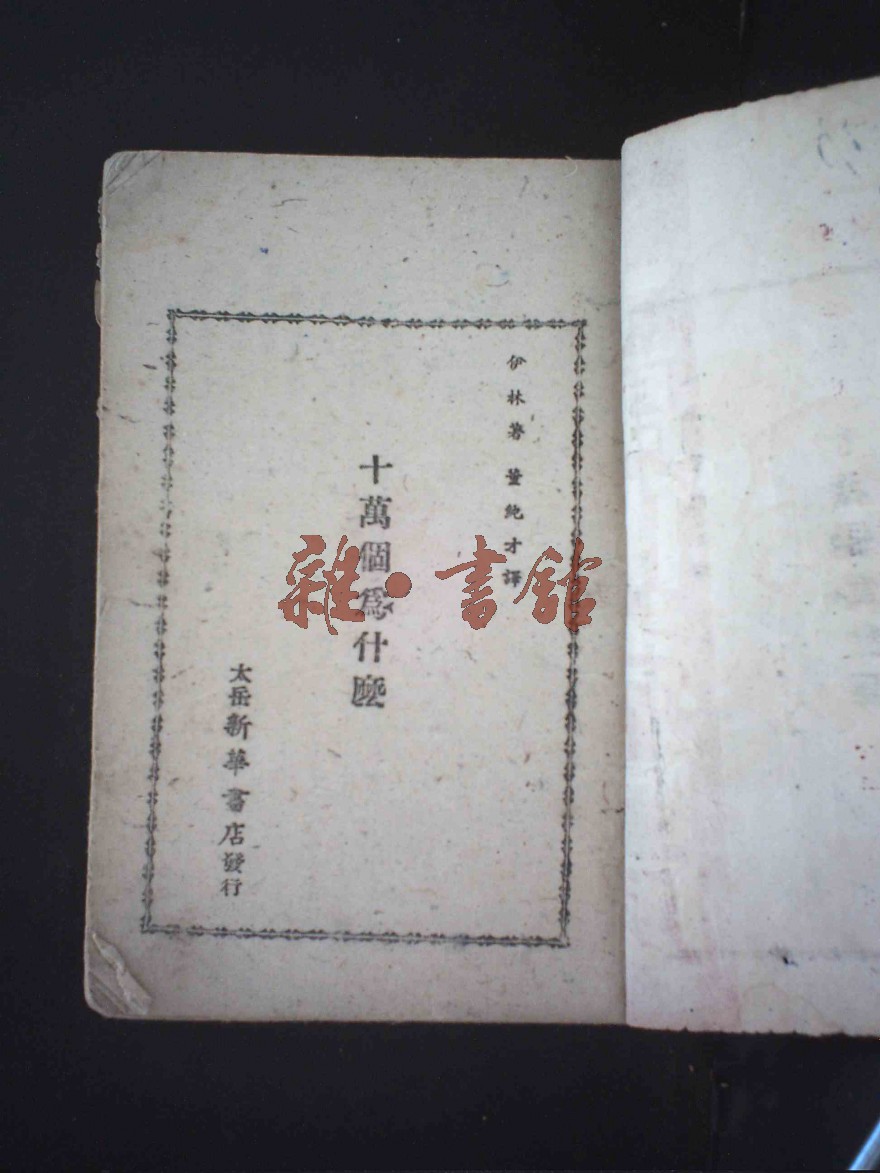 伊林著 董純才譯
十萬個爲什麼
太岳新華書店發行
雜·書館